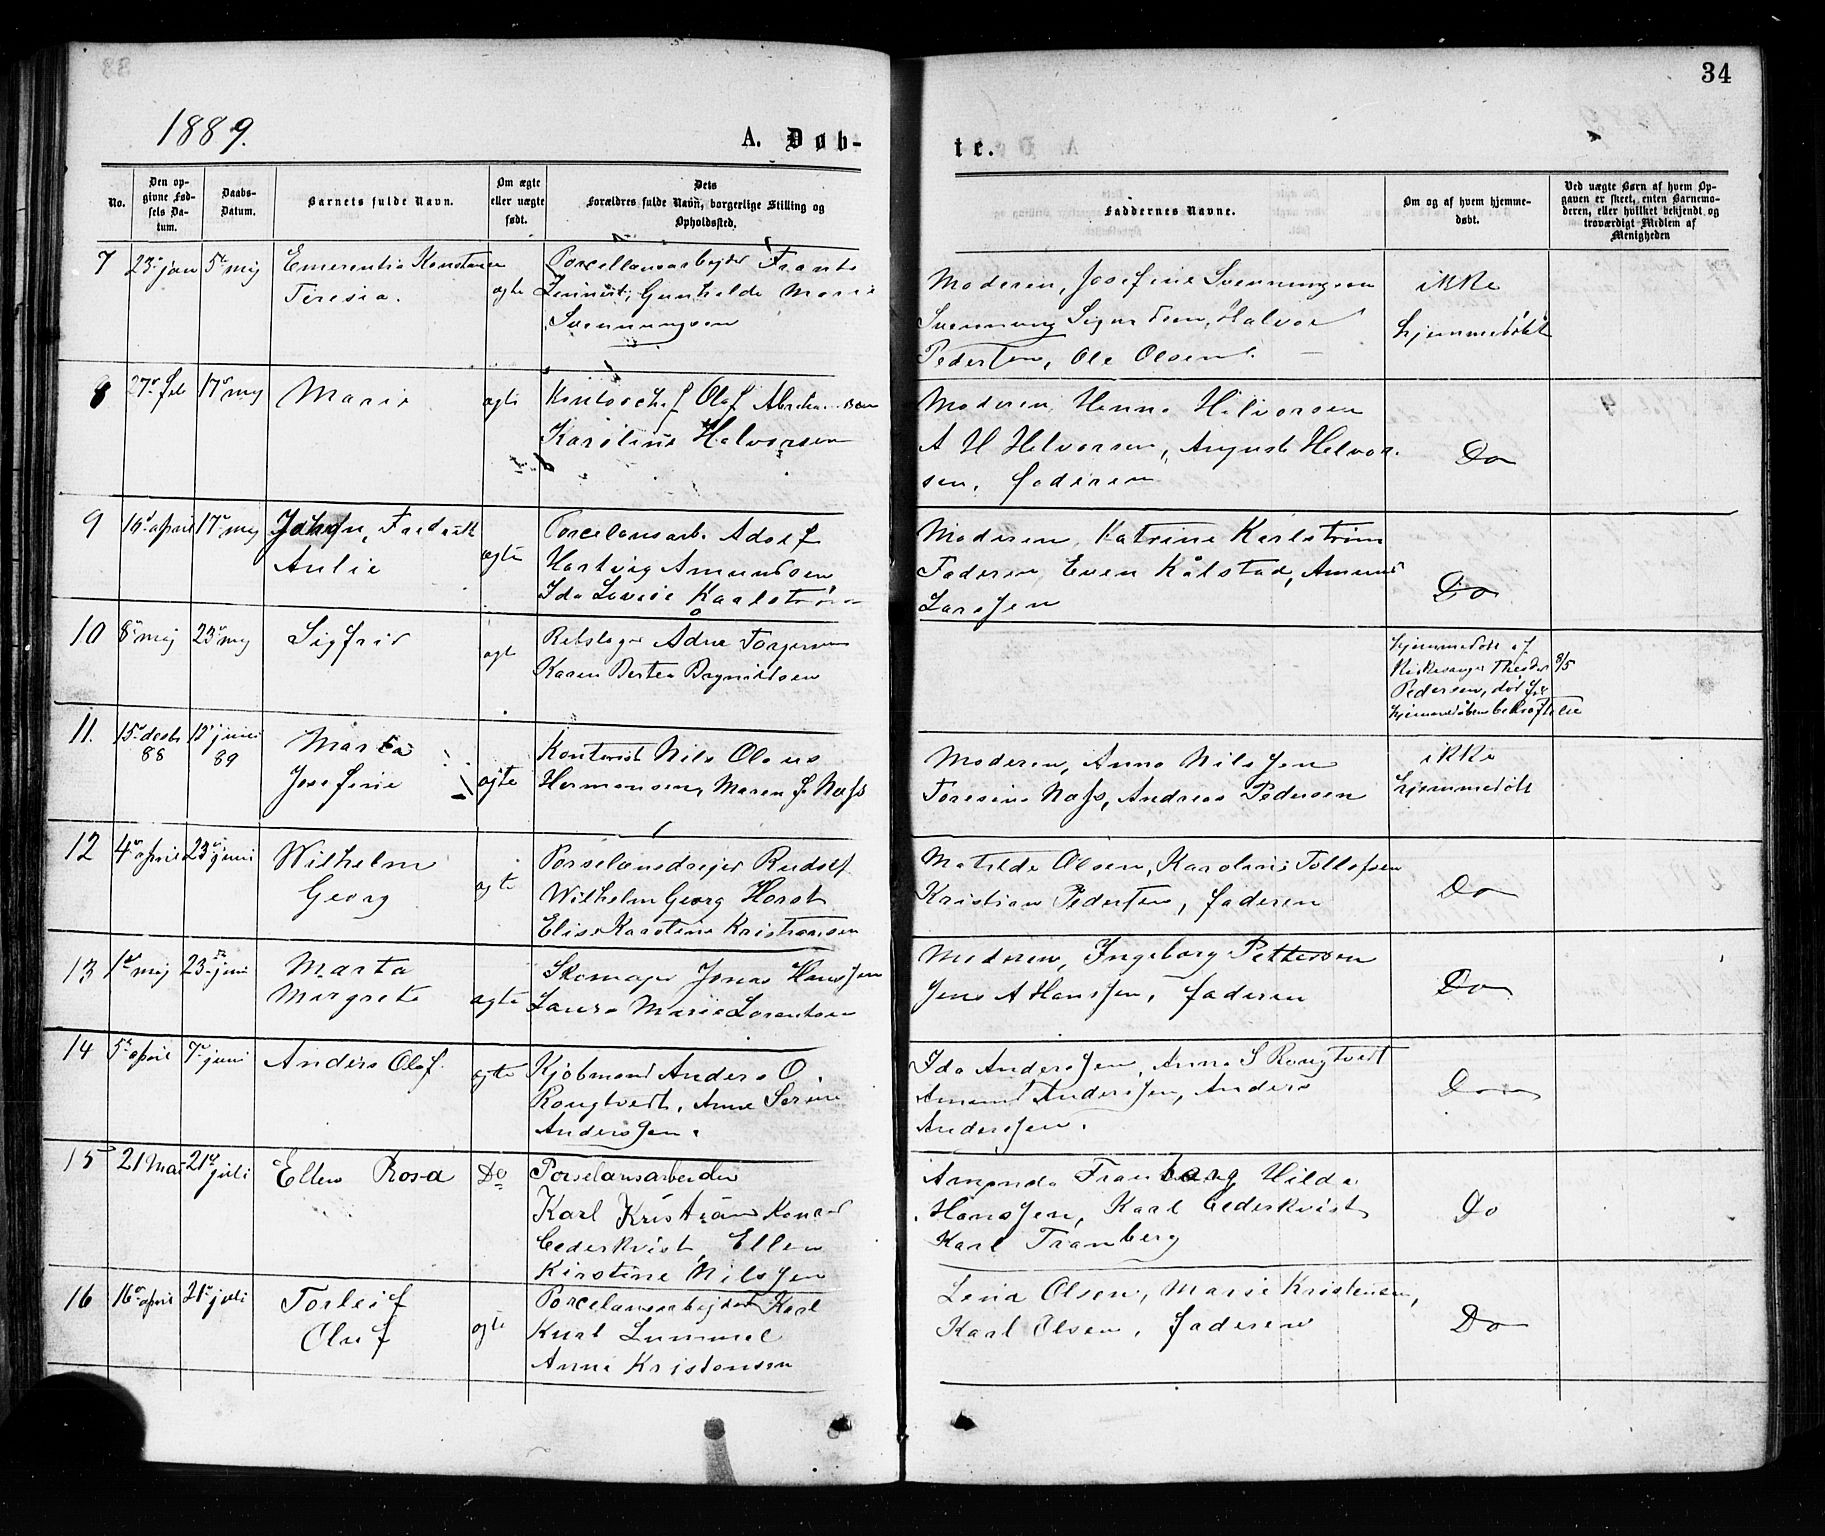 34
1889.
A. Døb-
te.
No.
Den op-
givne Fød-
sels Da-
tum.
Daabs-
Datum.
Barnets fulde Navn.
Om ægte
eller uægte
født.
Dets
Forældres fulde Navn, borgerlige Stilling og
Opholdssted.
Faddernes Navne.
Om og af hvem hjemme-
døbt.
Ved uægte Børn af hvem Op-
gaven er skeet, enten Barnemo-
deren, eller hvilket bekjendt og
troværdigt Medlem af
Menigheden
7 23 jan 5 maj Emerentia Konstanse
Teresia.
ægte
Porcellansarbejder Frants
Gunhilde Marie
Svenningsen
Moderen, Josefine Svenningsen
Svennung Halvor
Pedersen, Ole Olsen.
ikke
hjemmedøbt
8 27 feb 17 maj Marie
ægte
Kontorchef Olaf Abrahamsen
Karoline Halvorsen
Moderen, Hanna Halvorsen
A H Halvorsen, August Halvor-
sen, faderen
Do
9 16 april 17 maj John, Fredrik
Aulie
ægte
Porcelansarb. Adolf
Hartvig Amundsen
Ida Karlstrøm
Moderen, Katrine Karlstrøm
Faderen Even Kålstad, Amund
Larssen
Do
10 8 maj 23 maj Sigfrid
ægte
Rebslager Torgersen
Karen Bertea
hjemmedøbt af
Kirkesanger 8/5
Pedersen, død før
bekræftelse
11. 15 decbr 88 12 juni 89
Marta
Josefine
ægte
Kontorist Nils Olaus
Hermansen, Maren J. Næss
Moderen, Anna Nilssen
Toresine Næss, Andreas Pedersen
ikke
hjemmedøbt
12 4 april 23 juni Wilhelm
Georg
ægte
Porselansdrejer Rudolf
Wilhelm Georg Horst
Elise Karoline Kristiansen
Matilde Olsen, Karoline Tollefsen
Kristian Pedersen, faderen
Do
13 1 maj 23 juni Marta
Margrete
ægte
Skomager Jonas Hanssen
Laura Marie Lorentsen
Moderen, Ingeborg Pettersen
Jens A Hanssen, faderen
Do
14 5 april 7 juni Anders Olaf.
ægte
Kjøbmand Anders O.
Rougtvedt, Anne Serine
Anderssen.
Ida Anderssen, Anna S Rougtvedt
Amund Anderssen, Anders
Anderssen.
Do
15 21 Mai 21 juli Ellen Rosa
Do
Porselansarbeider
Karl Kristian Konrad
Cederkvist, Ellen
Kirstine Nilssen
Amanda Tranberg Hilda
Hanssen, Karl Cederkvist
Karl Tranberg
Do
16 16 april 21 juli Torleif
Oluf
ægte
Porcelansarbejder Karl
Knut Lummel
Anna Kristensen
Lena Olsen, Marie Kristensen,
Karl Olsen, faderen
Do